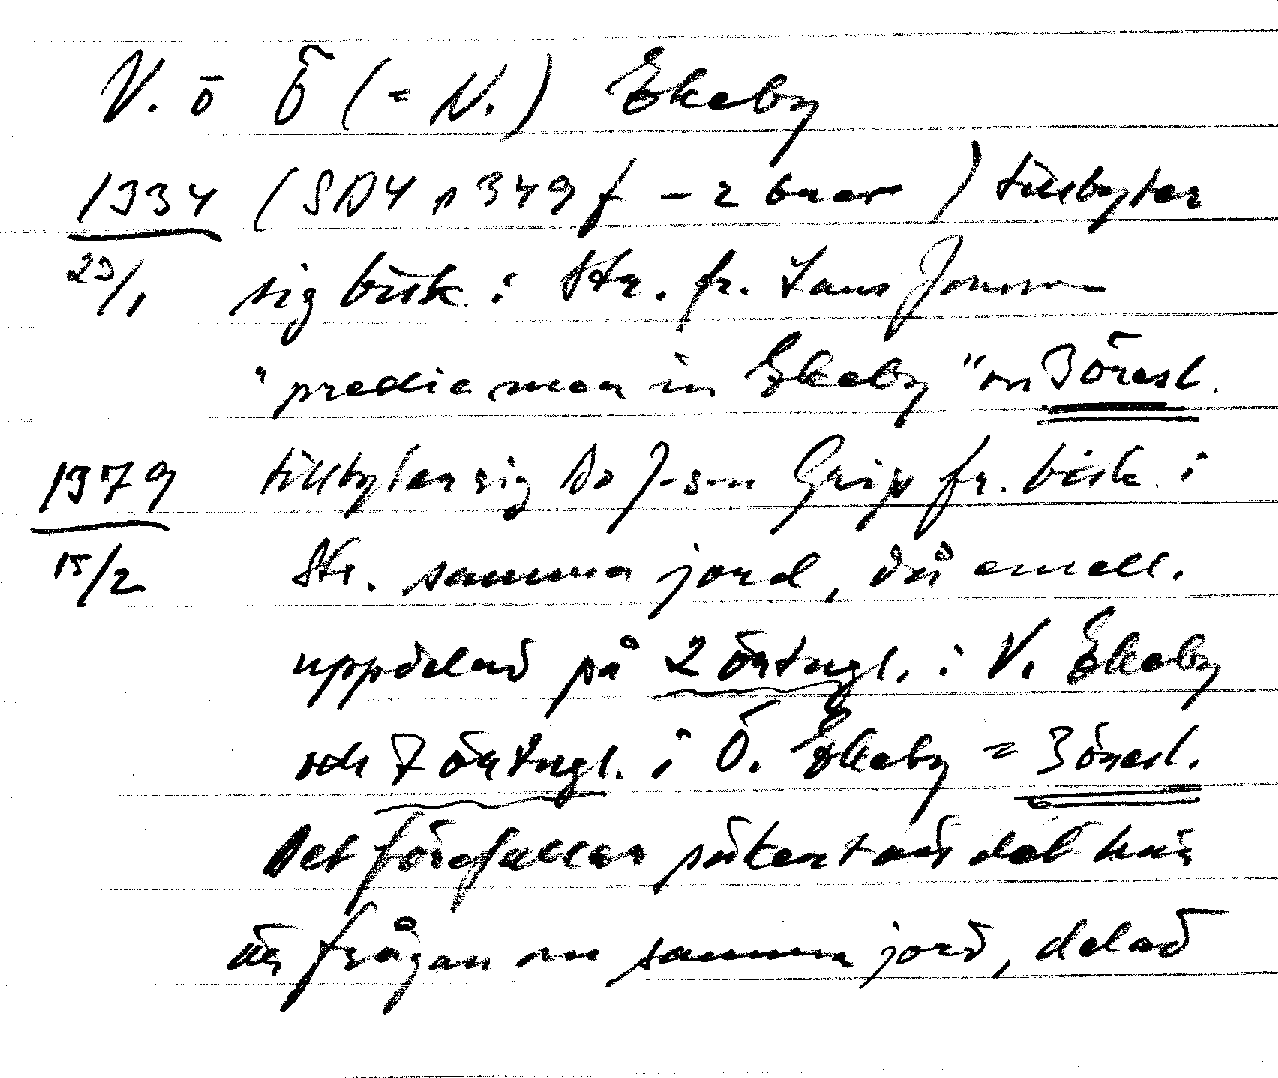 V. o Ö (= N.) Ekeby
1334 (SD4 p 349 f – 2 brev) tillbyter
23/1 sig bisk. i Str. fr. Laus Jonsson
"predie mea in Ekeby" om 3 öresl.
1379 tillbyter sig Bo J-son Grip fr. bisk. i
15/2 Str. samma jord, då emell.
uppdelad på 2 örtugl. i V. Ekeby
och 7 örtugl. i Ö. Ekeby = 3 öresl.
Det förefaller säkert att det här
är frågan om samma jord, delad